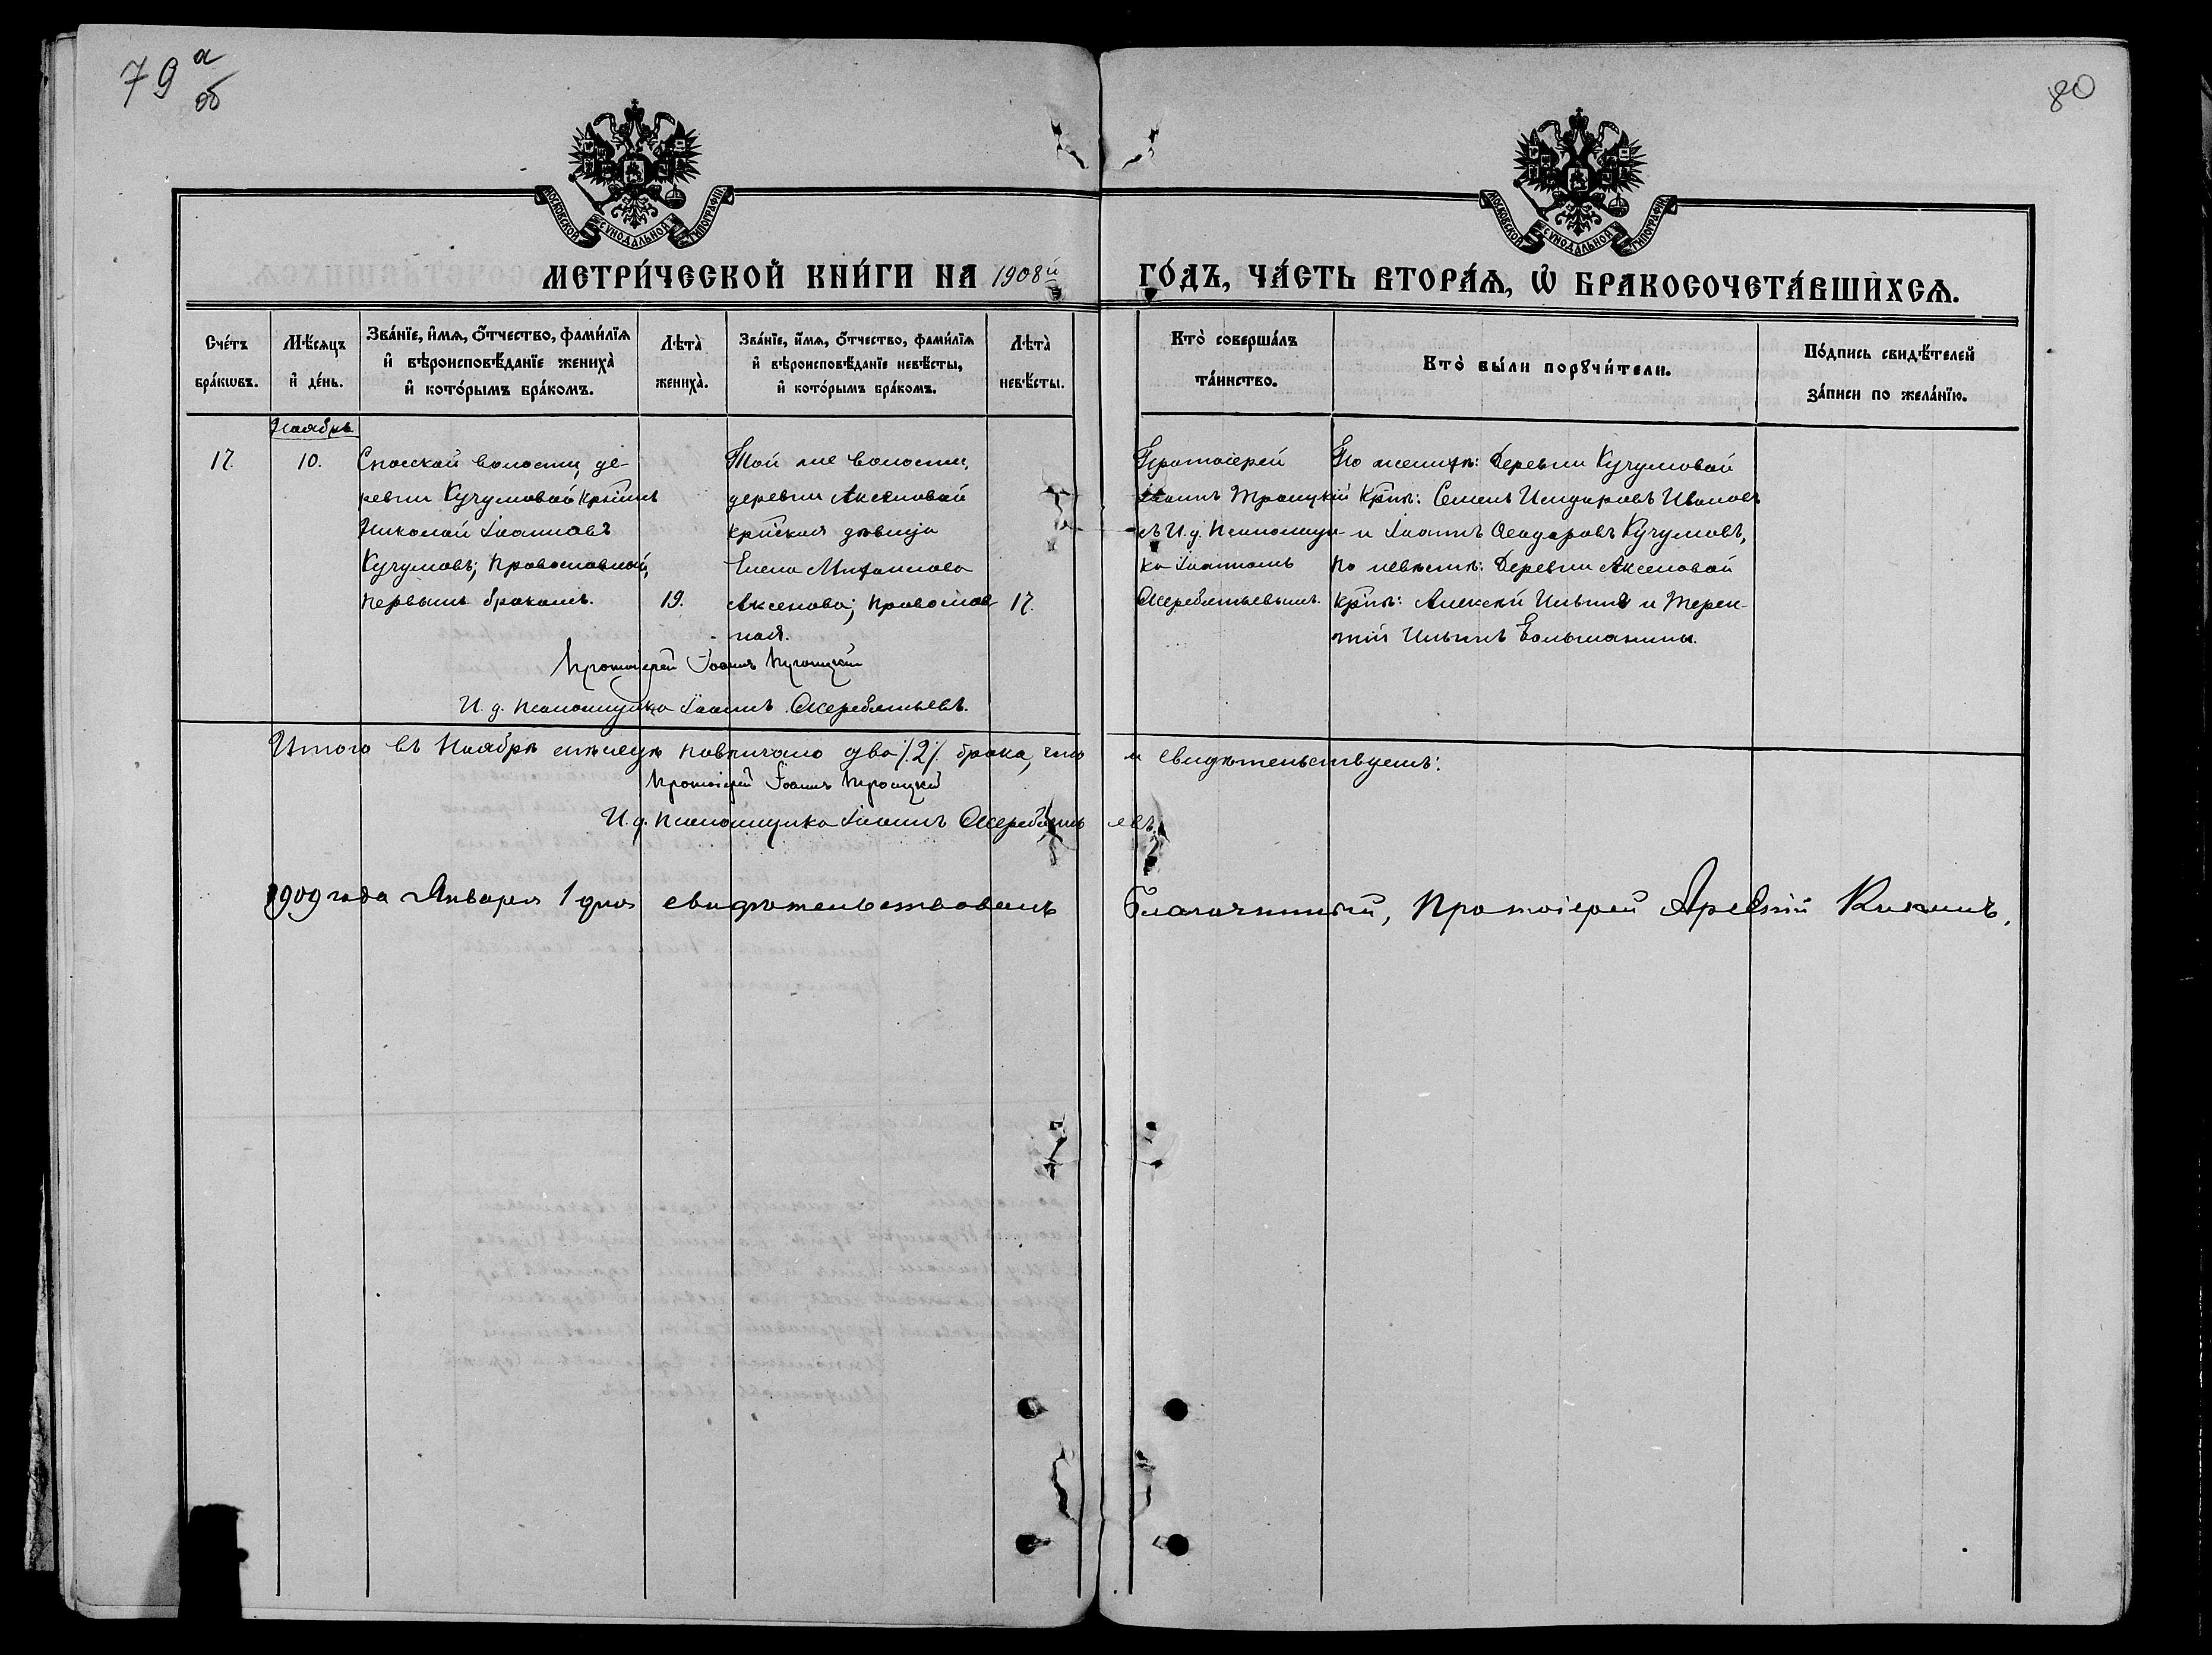 79 а
об
80
МОСКОВСКОЙ СѴНОДАЛЬНОЙ ТИПОГРАФІИ
МОСКОВСКОЙ СѴНОДАЛЬНОЙ ТИПОГРАФІИ
МЕТРИ́ЧЕСКОЙ КНИ́ГИ НА 1908й
ГО́ДЪ, ЧА́СТЬ ВТОРА́Ѧ, Ѽ БРАКОСОЧЕТА́ВШИХСѦ.
Сче́тъ
бра́кѡвъ.
Мѣ́сѧцъ
и҆ де́нь.
Зва́нїе, и҆́мѧ, ѻ҆́тчество, фами́лїѧ
и҆ вѣроисповѣ́данїе жениха̀
и҆ кото́рымъ бра́комъ.
Лѣта̀
жениха̀.
Зва́нїе, и҆́мѧ, ѻ҆́тчество, фами́лїѧ
и҆ вѣроисповѣ́данїе невѣ́сты,
и҆ кото́рымъ бра́комъ.
Лѣта̀
невѣ́сты.
Кто̀ соверша́лъ
та́инство.
Кто̀ бы́ли порꙋчи́тели.
По́дпись свидѣ́телей
за́писи по жела́нїю.
Ноябрь
17.
10.
Спасской волости, де-
ревни Кучумовой кр͠нинъ
Николай Іоанновъ
Кучумовъ; православной,
первымъ бракомъ.
19.
Той же волости,
деревни Аксеновой
кр͠нская дѣвица
Елена
Аксенова; православ-
ная.
17.
Протоіерей
Іоаннъ Троицкій
съ И. д. псаломщи-
ка Іоанномъ
Жеребятьевымъ.
По женихѣ: Деревни Кучумовой
кр͠не: Семенъ Ивановъ
и Іоаннъ Ѳеодоровъ Кучумовъ,
по невѣстѣ: Деревни Аксеновой
кр͠не: Алексѣй Ильинъ и Терен-
тій Ильинъ
Протоіерей Іоаннъ Троицкій
И. д. псаломщика Іоаннъ Жеребятьевъ.
Итого въ Ноябрѣ мѣсяцѣ повѣнчано два /.2/. брака, что и свидѣтельствуемъ:
Протоіерей Іоаннъ Троицкій
И. д. псаломщика Іоаннъ Жеребятьевъ.
1909 года Января 1 дня свидѣтельствовалъ Благочинный, Протоіерей